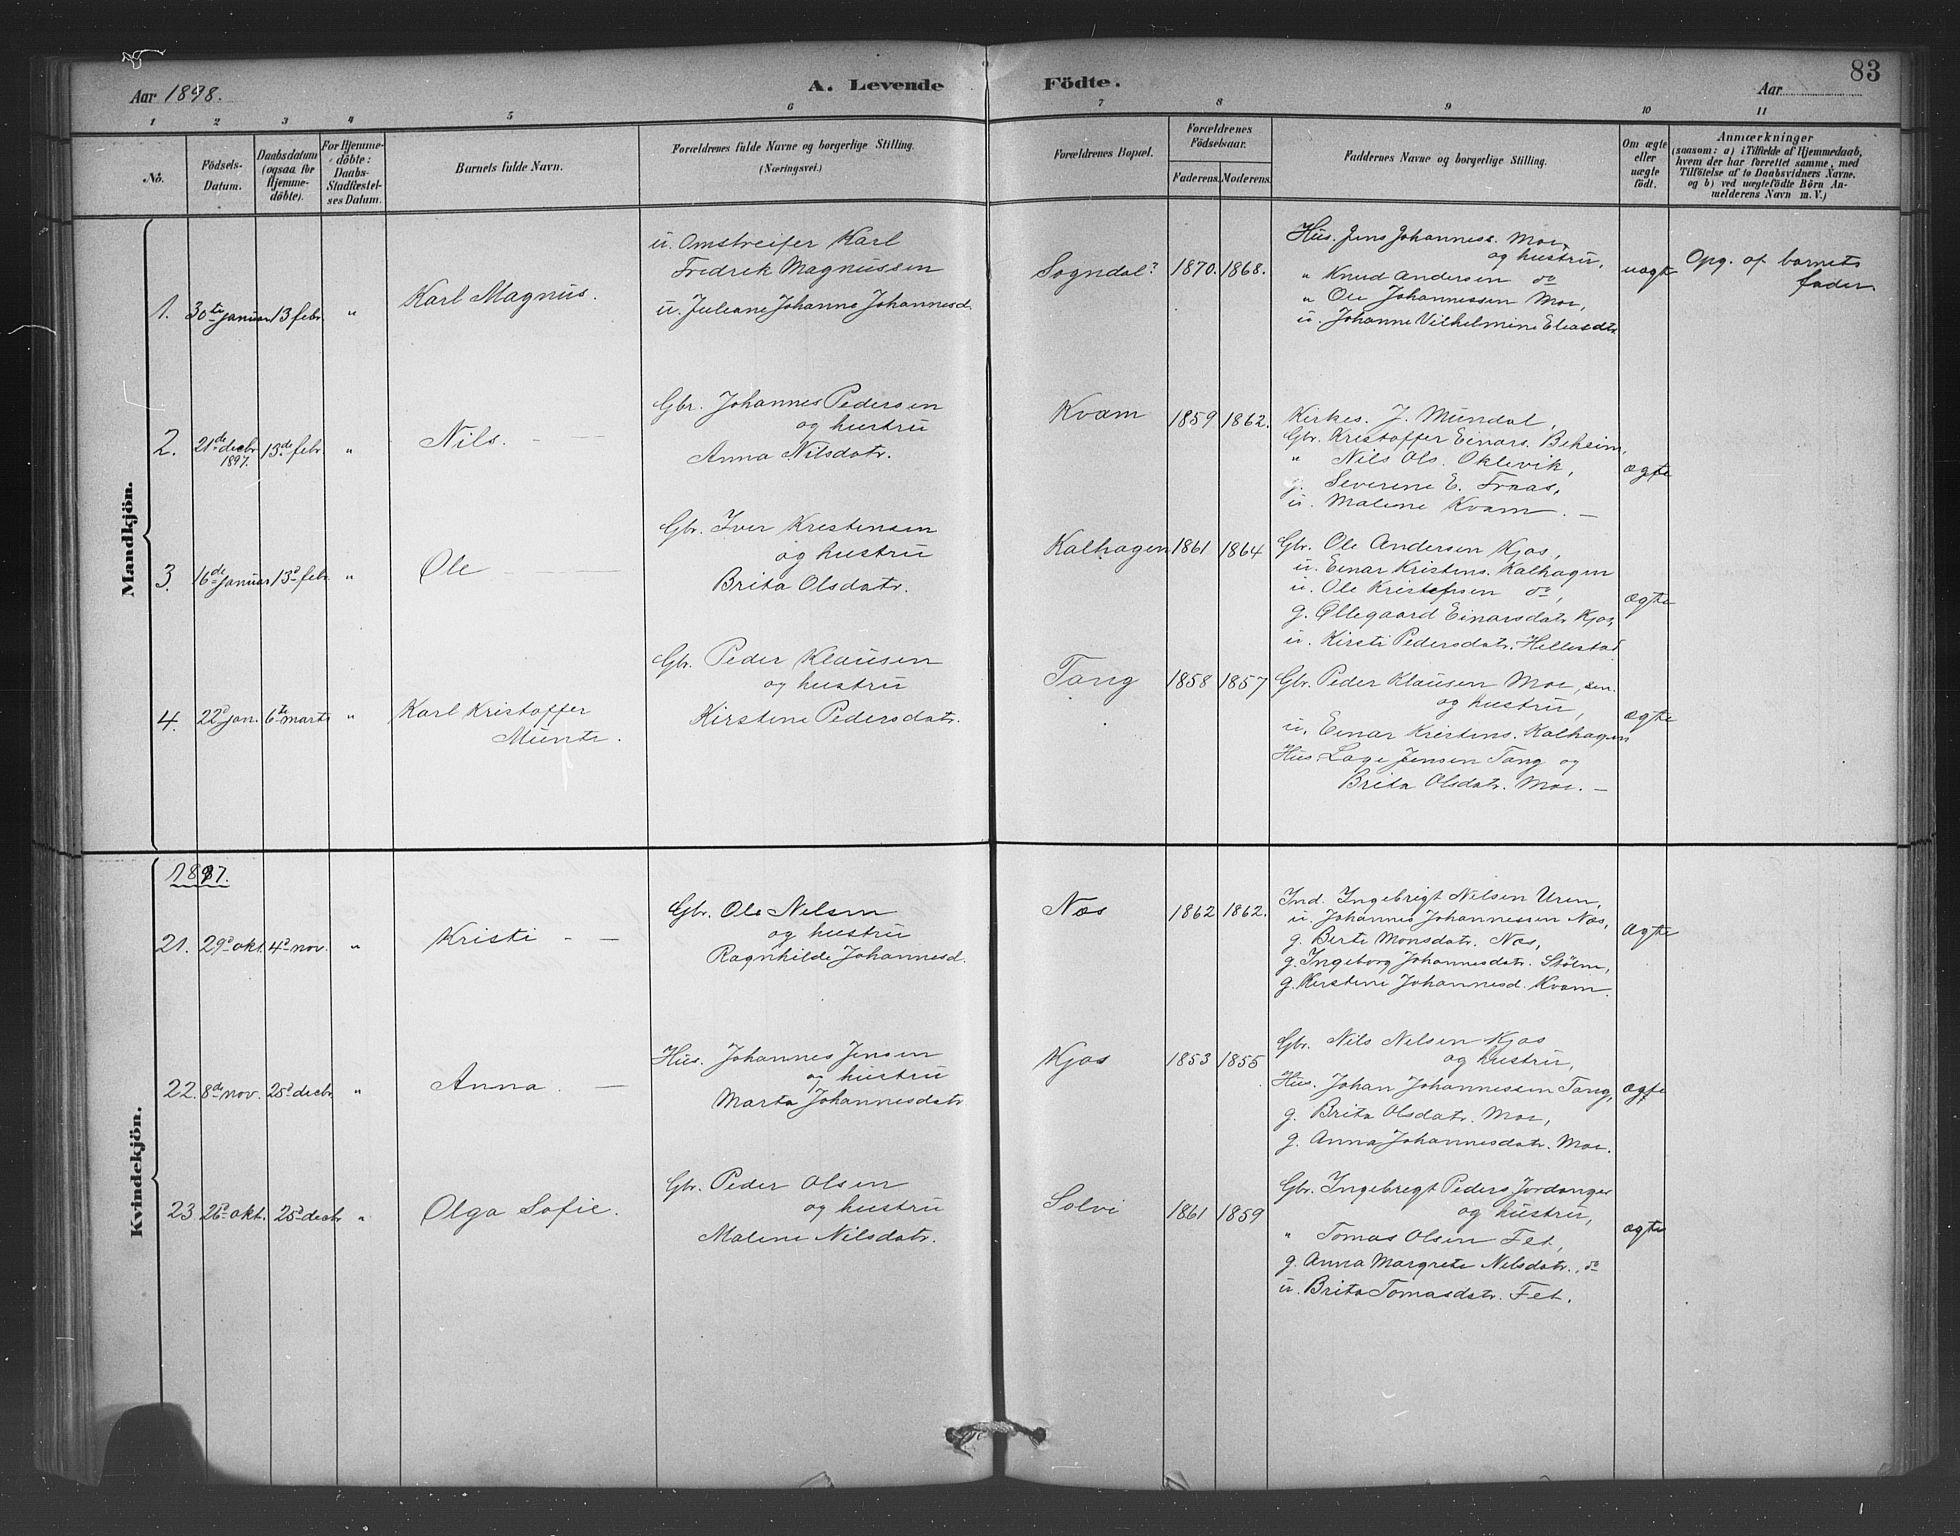 83
Aar 1898.
A. Levende Födte.
Aar
1 2 3 4 5 6 7 8 9 10 11
No.
Födsels-Datum.
Daabsdatum (ogsaa for Hjemme-döbte).
For Hjemme-döbte: Daabs-Stadfæstel-ses Datum.
Barnets fulde Navn.
Forældrenes fulde Navne og borgerlige Stilling. (Næringsvei.)
Forældrenes Bopæl.
Forældrenes Födselsaar.
Faderens. Moderens.
Faddernes Navne og borgerlige Stilling.
Om ægte eller uægte födt.
Anmærkninger
(saasom: a) i Tilfælde af Hjemmedaab,
hvem der har forrettet samme, med
Tilföielse af to Daabsvidners Navne.
og b) ved uægtefödte Börn An-
melderens Navn m. V.)
Mandkjön.
1. 30te januar 13 febr. " Karl Magnus.
u. Omstreifer Karl
Fredrik Magnussen
u. Juliane Johanne Johannesd.
Sogndal? 1870. 1868.
Hus. Jens Johanness. Moe,
og hustru,
" Knud Andersen do
" Ole Johannessen Moe,
u. Johanne Vilhelmine Eliasdtr
uægte
Opg. af barnets
fader.
2. 21de decbr. 1897. 13de febr. " Nils. - -
Gbr. Johannes Pedersen
og hustru
Anna Nilsdatr.
Kvam 1859 1862.
Kirkes. J. Mundal,
Gbr. Kristoffer Einars. Beheim,
" Nils Ols. Oklevik,
g. Severine E. Fraas,
u. Malene Kvam. -
ægte
3. 16de januar 13d febr. " Ole - - -
Gbr. Iver Kristensen
og hustru
Brita Olsdatr.
Kalhagen 1861 1864
Gbr. Ole Andersen Kjos,
u. Einar Kristens. Kalhagen
u. Ole Kristensen do,
g. Øllegaard Einarsdatr. Kjos,
u. Kirsti Pedersdatr. Hillestad
ægte
4. 22d jan. 6te marts " Karl Kristoffer
Munte.
Gbr. Peder Klausen
og hustru
Kirstine Pedersdatr.
Tang 1858 1857
Gbr. Peder Klausen Moe, sen.
og hustru,
u. Einar Kristens. Kalhagen
Hus. Lage Jensen Tang og
Brita Olsdatr. Moe. -
ægte
Kvindekjön.
1897.
21. 29d okt. 4d nov. " Kristi - -
Gbr. Ole Nelsen
og hustru
Ragnhilde Johannesd.
Næs 1862 1862.
Ind. Ingebrigt Nilsen Uren,
u. Johannes Johannessen Næs,
g. Berte Monsdatr. Næs,
g. Ingeborg Johannesdatr. Stølen,
g. Kerstine Johannesd. Kvam.
ægte
22. 8de nov. 25d decbr. " Anna. -
Hus. Johannes Jensen
og hustru
Marta Johannesdatr
Kjos 1853 1855
Gbr. Nils Nelsen Kjos
og hustru,
Hus. Johan Johannessen Tang,
g. Brita Olsdatr. Moe,
g. Anna Johannesdatr. Moe.
ægte
23 26d okt. 25d decbr " Olga Sofie.
Gbr. Peder Olsen
og hustru
Malene Nilsdatr.
Solvi 1861 1859
Gbr. Ingebregt Peders Jordanger
og hustru,
" Tomas Olsen Fet,
g. Anna Margrete Nilsdatr. do
u. Brita Tomasdtr. Fet.
ægte